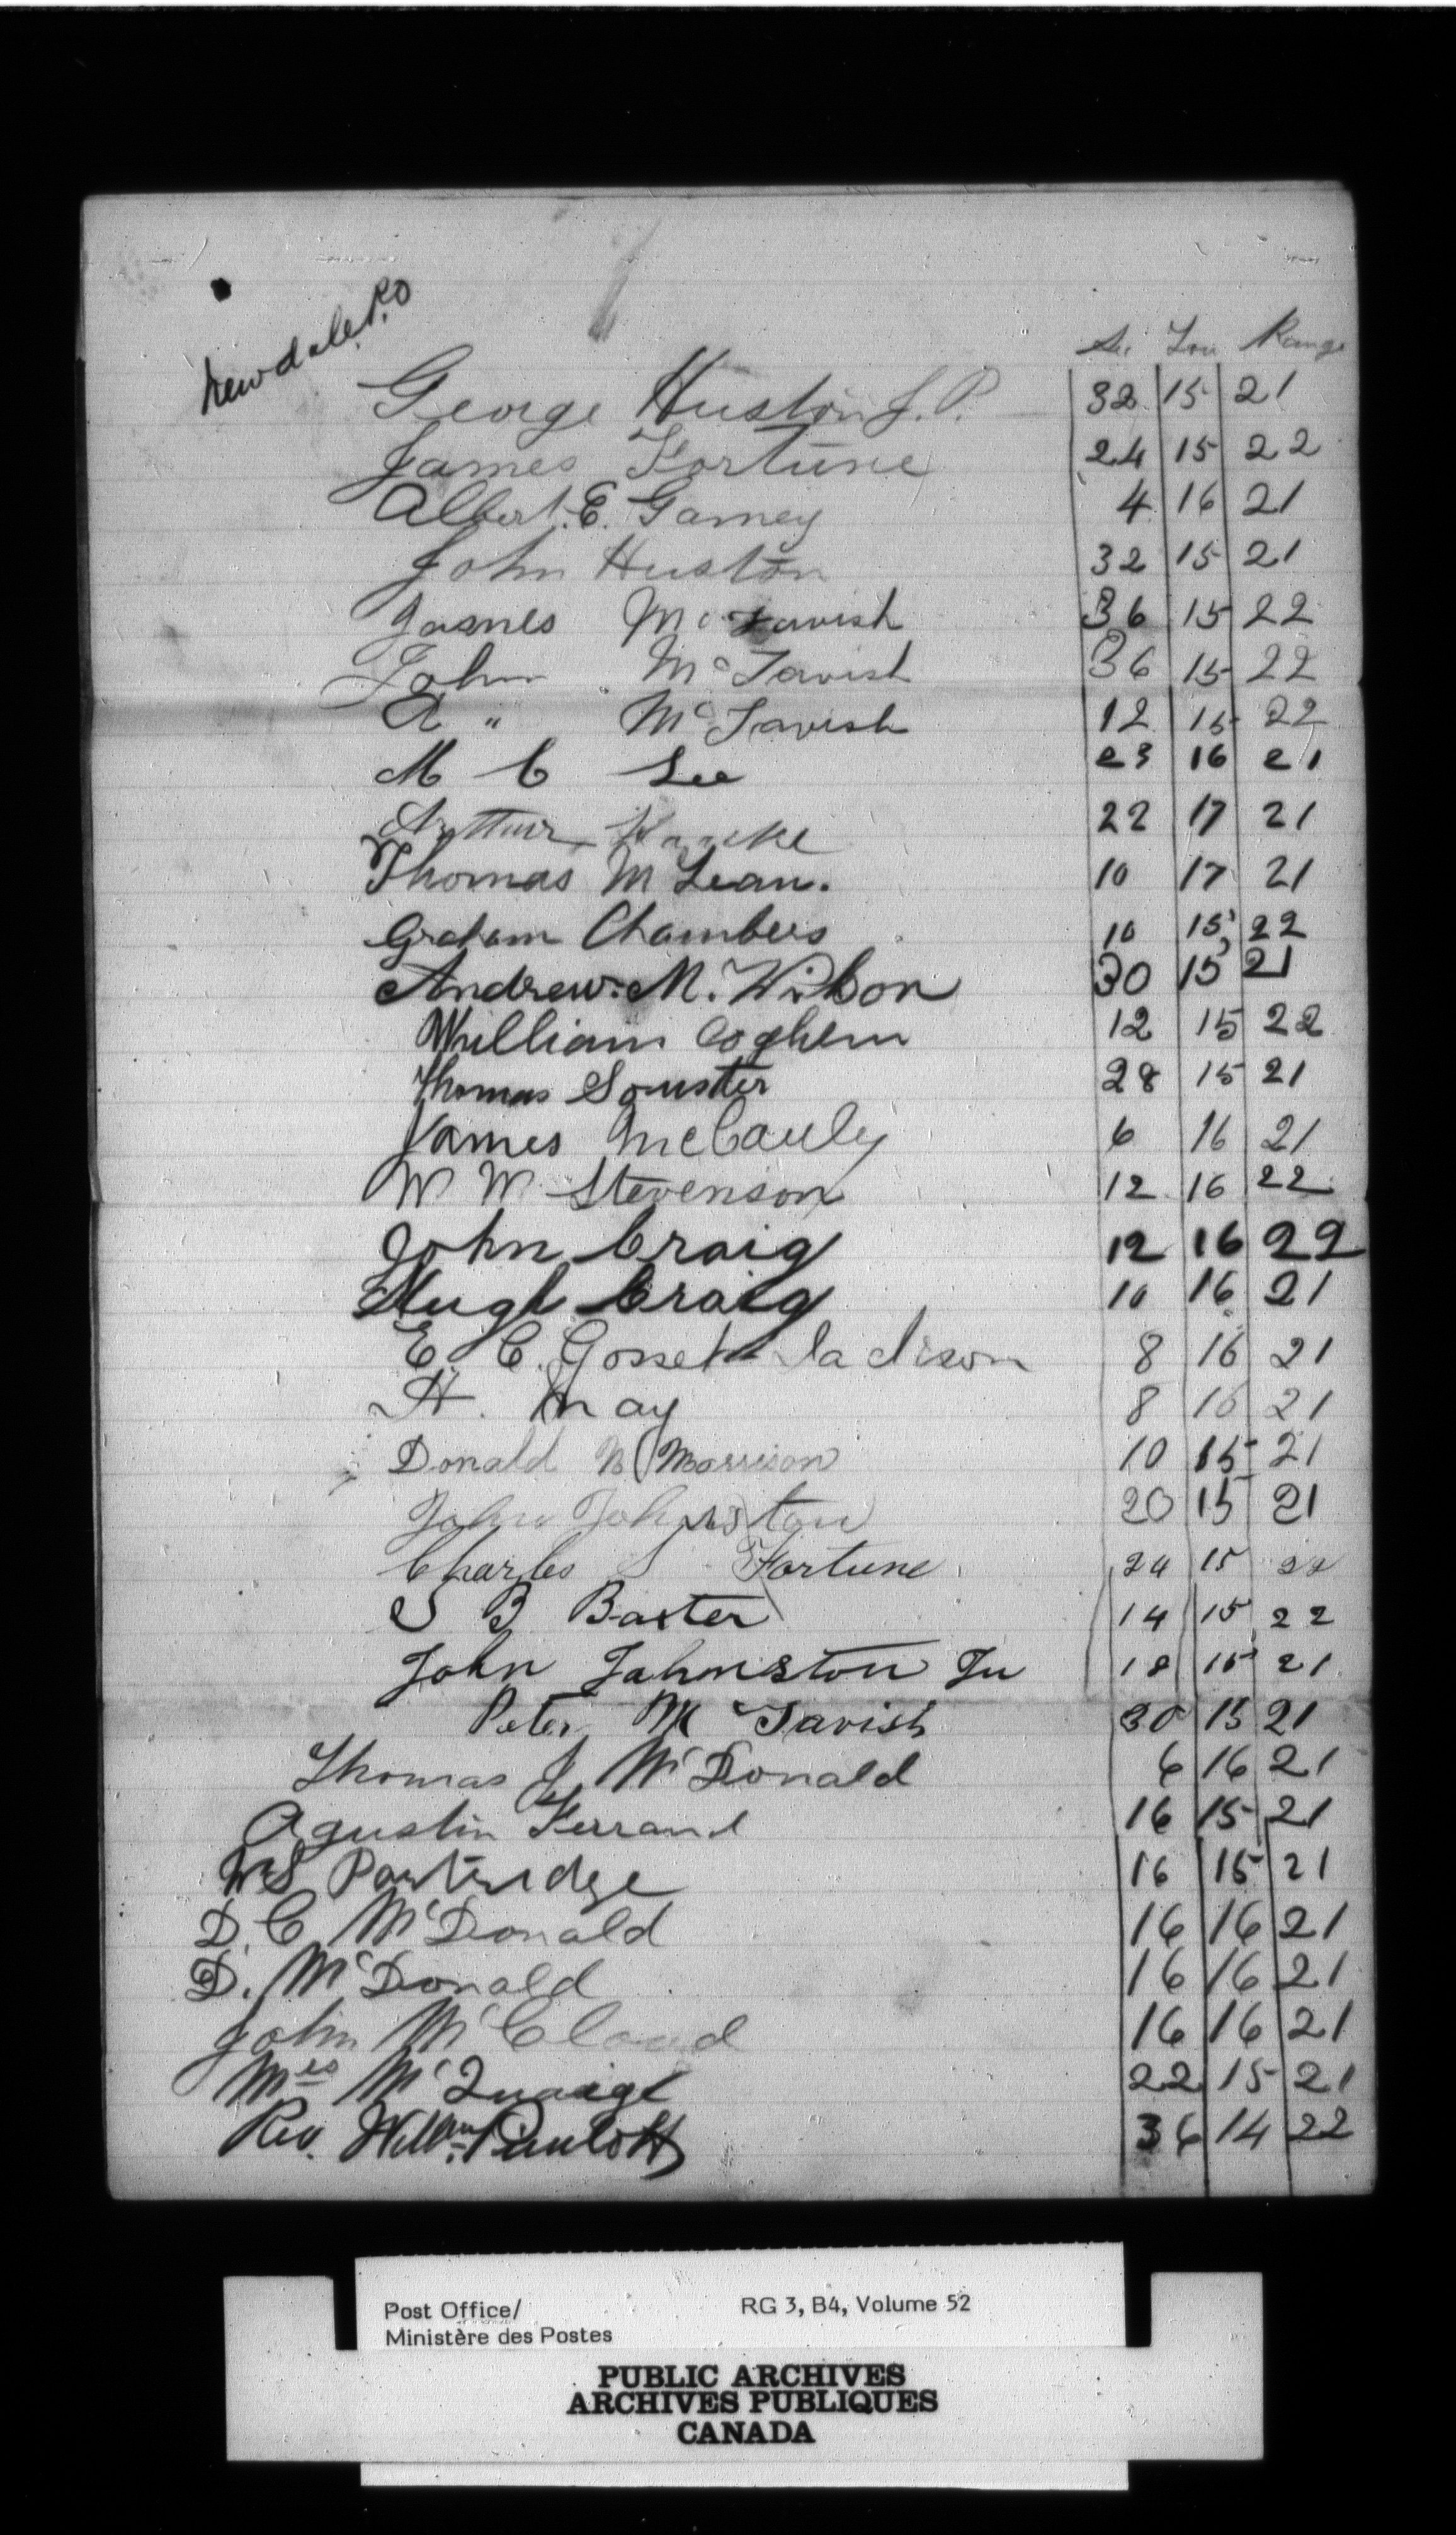 Newdale P.O
Sec Tow Range
George Huston J. P. 32 15 21
James Fortune 24 15 22
Albert. E. Gamey 4 16 21
John Huston 32 15 21
James Mc Tavish 36 15 22
John McTavish 36 15 22
A " McTavish 12 15 22
M C Lee 23 16 21
Arthur 22 17 21
Thomas M Lean. 10 17 21
Graham Chambers 10 15 22
Andrew. M. Wilson 30 15 21
Whilliam Coghem 12 15 22
Thomas Souster 28 15 21
James McCauley 6 16 21
W W Stevenson 12 16 22
John Craig 12 16 22
Hugh Craig 10 16 21
E. C. Gosset Jackson 8 16 21
H. May 8 16 21
Donald Morrison 10 15 21
John Johnston 20 15 21
Charles S Fortune 24 15 22
S B Baxter 14 15 22
John Johnston Ju 18 15 21
Peter Mc Tavish 30 15 21
Thomas J McDonald 6 16 21
Agustin Ferrand 16 15 21
WS Parteridge 16 15 21
D. C McDonald 16 16 21
D. McDonald 16 16 21
John McCloud 16 16 21
Mrs McQuaige 22 15 21
Rev. Willam 36 14 22
Post Office/ RG 3, B4, Volume 52
Ministère des Postes
PUBLIC ARCHIVES
ARCHIVES PUBLIQUES
CANADA